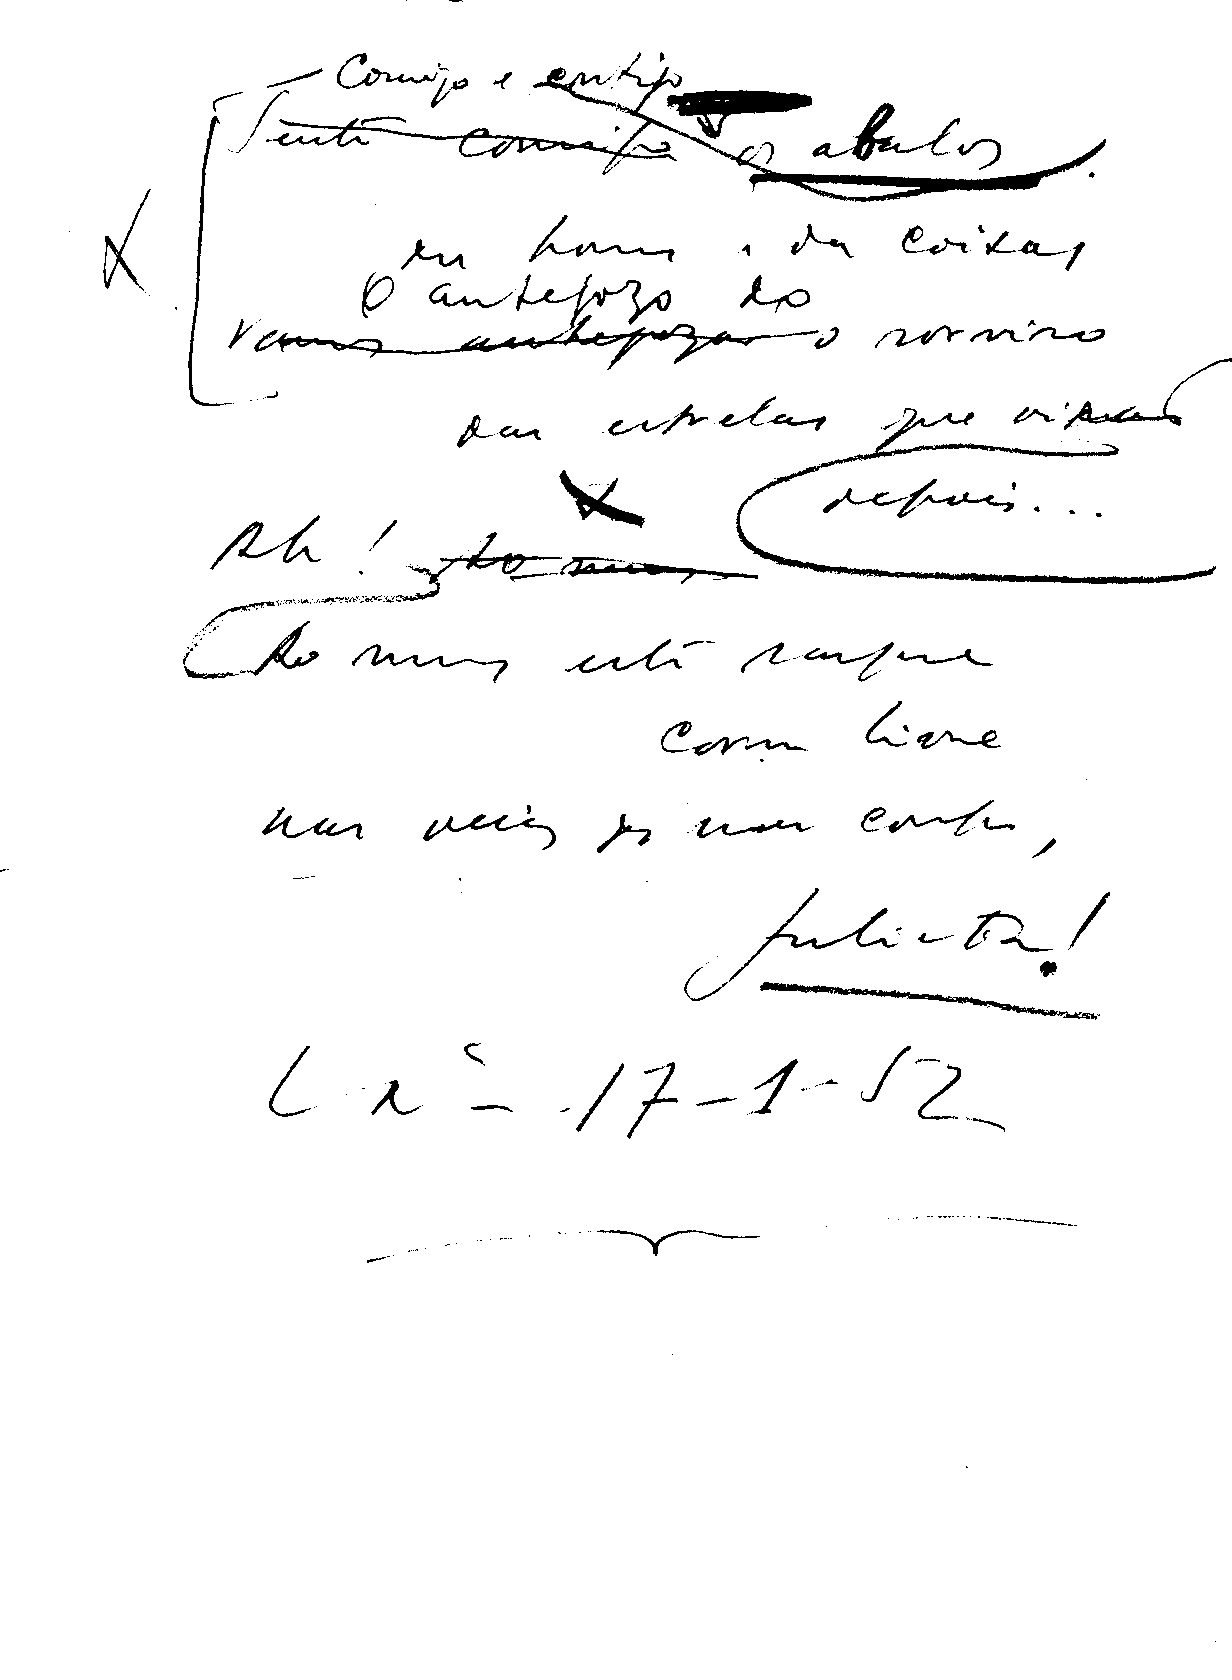 — Comigo e contigo
Senti comigo os abalos
dos homens e das coisas
O antegozo do
vamos antegozar o sorriso
das estrelas que vi
depois...
Ah! Ao menos
Ao menos está sangue
corra livre
nas veias do meu corpo,
Julieta!
Lxª - 17-1-52